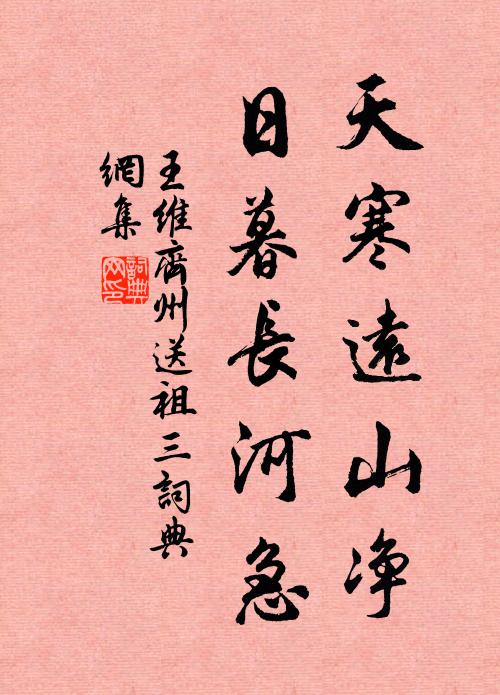 天寒遠山净
日暮長河急
王維齊州送祖三詞典
網集
詞典
网印